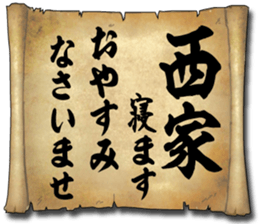 西家
寝ます
おやすみ
なさいませ